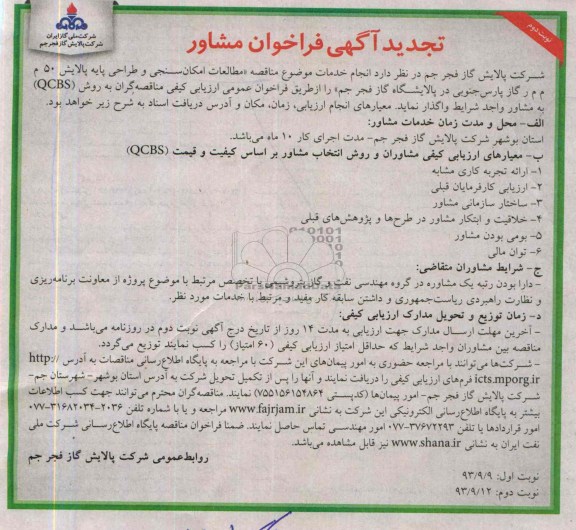 نوبت دوم
شرکت ملی گاز ایران
شرکت پالایش گاز فجر جم
تجدید آگهی فراخوان مشاور
شرکت پالایش گاز فجر جم در نظر دارد انجام خدمات موضوع مناقصه «مطالعات امکان‌سنجی و طراحی پایه پالایش ۵۰ م
م م ر گاز پارس‌جنوبی در پالایشگاه گاز فجر جم» را ازطریق فراخوان عمومی ارزیابی کیفی مناقصه‌گران به روش (QCBS)
به مشاور واجد شرایط واگذار نماید. معیارهای انجام ارزیابی، زمان، مکان و آدرس دریافت اسناد به شرح زیر خواهد بود.
الف- محل و مدت زمان خدمات مشاور:
استان بوشهر شرکت پالایش گاز فجر جم- مدت اجرای کار ۱۰ ماه می‌باشد.
ب- معیارهای ارزیابی کیفی مشاوران و روش انتخاب مشاور بر اساس کیفیت و قیمت (QCBS)
۱- ارائه تجربه کاری مشابه
۲- ارزیابی کارفرمایان قبلی
۳- ساختار سازمانی مشاور
۴- خلاقیت و ابتکار مشاور در طرح‌ها و پژوهش‌های قبلی
۵- بومی بودن مشاور
۶- توان مالی
ج- شرایط مشاوران متقاضی:
- دارا بودن رتبه یک مشاوره در گروه مهندسی نفت و گاز پتروشیمی با تخصص مرتبط با موضوع پروژه از معاونت برنامه‌ریزی
و نظارت راهبردی ریاست‌جمهوری و داشتن سابقه کار مفید و مرتبط با خدمات مورد نظر.
د- زمان توزیع و تحویل مدارک ارزیابی کیفی:
- آخرین مهلت ارسال مدارک جهت ارزیابی به مدت ۱۴ روز از تاریخ درج آگهی نوبت دوم در روزنامه می‌باشد و مدارک
مناقصه بین مشاوران واجد شرایط که حداقل امتیاز ارزیابی کیفی (۶۰ امتیاز) را کسب نمایند توزیع می‌گردد.
- شرکت‌ها می‌توانند با مراجعه حضوری به امور پیمان‌های این شرکت یا مراجعه به پایگاه اطلاع‌رسانی مناقصات به آدرس http://
icts.mporg.ir فرم‌های ارزیابی کیفی را دریافت نمایند و آنها را پس از تکمیل تحویل شرکت به آدرس استان بوشهر- شهرستان جم-
شرکت پالایش گاز فجر جم- امور پیمان‌ها (کدپستی ۷۵۵۱۵۶۱۵۴۸۶۴) نمایند. مناقصه‌گران محترم می‌توانند جهت کسب اطلاعات
بیشتر به پایگاه اطلاع‌رسانی الکترونیکی این شرکت به نشانی www.fajrjam.ir مراجعه و یا با شماره تلفن ۲۰۳۶-۰۷۷-۳۱۶۸۲۰۳۴
امور قراردادها یا تلفن ۰۷۷-۳۷۶۷۲۲۹۳ امور مهندسی تماس حاصل نمایند. ضمنا فراخوان مناقصه پایگاه اطلاع‌رسانی شرکت ملی
نفت ایران به نشانی www.shana.ir نیز قابل مشاهده می‌باشد.
روابط‌عمومی شرکت پالایش گاز فجر جم
نوبت اول: ۹۳/۹/۹
نوبت دوم: ۹۳/۹/۱۲